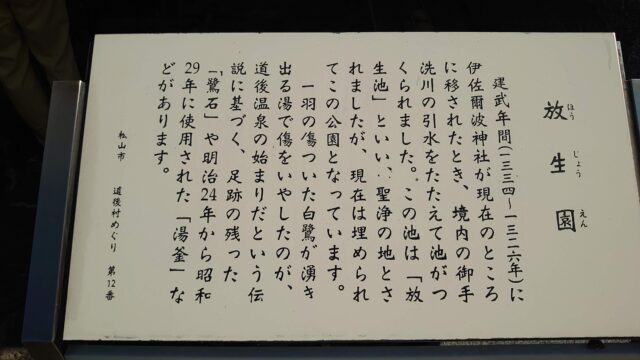 放生園
ほう じょう えん
建武年間(一三三四〜一三二六年)に
伊佐爾波神社が現在のところ
に移されたとき、境内の御手
洗川の引水をたたえて池がつ
くられました。この池は「放
生池」といい、聖浄の地とさ
れましたが、現在は埋められ
てこの公園となっています。
一羽の傷ついた白鷺が湧き
出る湯で傷をいやしたのが、
道後温泉の始まりだという伝
説に基づく、足跡の残った
「鷺石」や明治24年から昭和
29年に使用された「湯釜」な
どがあります。
松山市 道後村めぐり 第12番